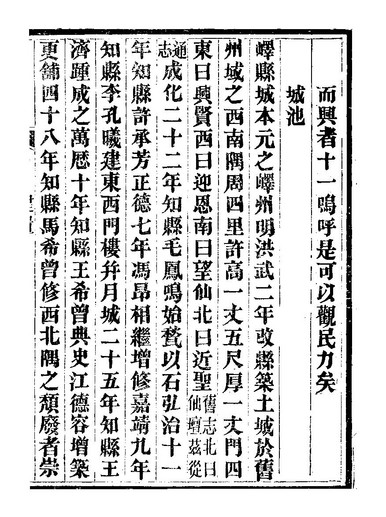 而興者十一嗚呼是可以觀民力矣
城池
嶧縣城本元之嶧州明洪武二年改縣築土城於舊
州城之西南隅周四里許高一丈五尺厚一丈門四
東曰興賢西曰迎恩南曰望仙北曰近聖舊志北曰仙壇茲從
通志成化二十二年知縣毛鳳鳴始甃以石弘治十一
年知縣許承芳正德七年馮昂相繼增修嘉靖九年
知縣李孔曦建東西門樓幷月城二十五年知縣王
濟踵成之萬歷十年知縣王希曾典史江德容增築
更舖四十八年知縣馬希曾修西北隅之頹廢者崇